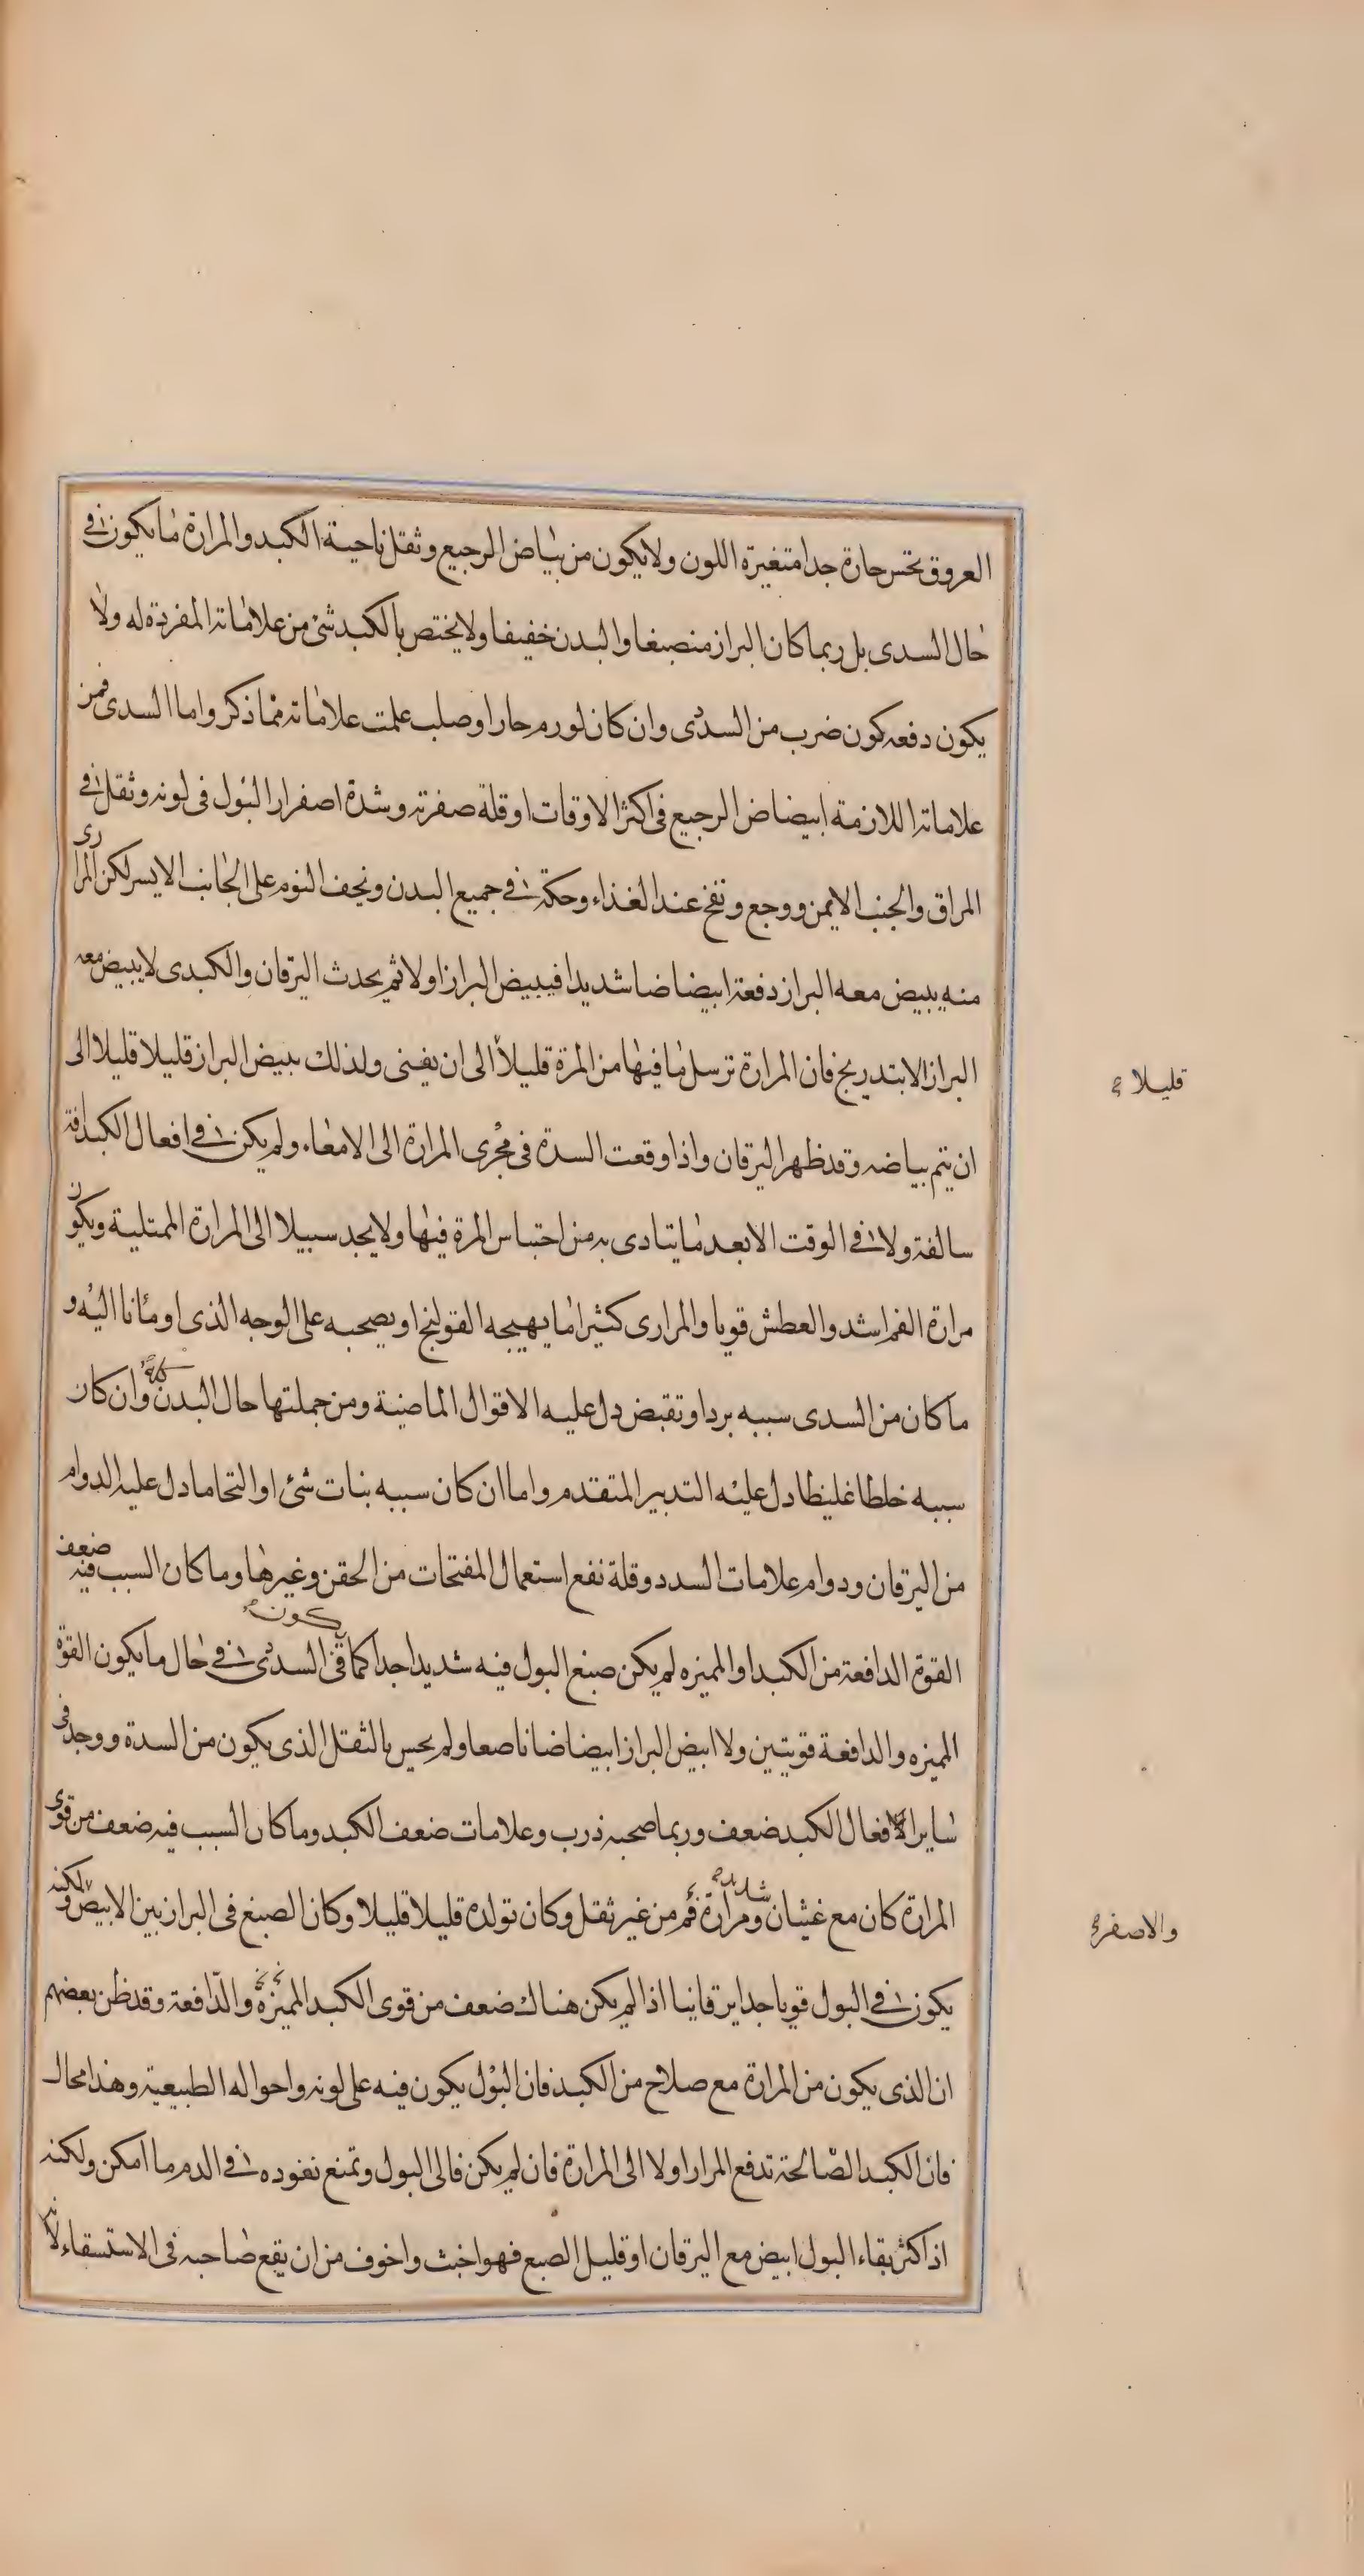 العروق تحس حارة جدا متغيرة اللون ولا يكون من بياض الرجيع وثقل ناحية الكبد والمرارة ما يكون في
حال السدى بل ربما كان البراز منصبغا والبدن خفيفا ولا يختص بالكبد شئ من علاماته المفردة له ولا
يكون دفعه كون ضرب من السدى وان كان لورم حار او صلب علمت علاماته مما ذكر واما السدى فمن
علاماته اللازمة ابيضاض الرجيع في اكثر الاوقات او قلة صفرته وشدة اصفرار البول في لونه وثقل في
المراق والجنب الايمن ووجع ونفخ عند الغذاء وحكة في جميع البدن ويخف النوم على الجانب الايسر لكن المرارى
منه يبيض معه البراز دفعة ابيضاضا شديدا فيبيض البراز اولا ثم يحدث اليرقان والكبدى لا يبيض معه
البراز الا بتدريج فان المرارة ترسل ما فيها من المرة قليلا الى ان يفنى ولذلك يبيض البراز قليلا قليلا الى
قليلا
ان يتم بياضه وقد ظهر اليرقان واذا وقعت السدة في مجرى المرارة الى الامعاء ولم يكن في افعال الكبد افة
سالفة ولا في الوقت الا بعد ما يتادى به من احتباس المرة فيها ولا يجد سبيلا الى المرارة الممتلية ويكون
مرارة الفم اشد والعطش قويا والمرارى كثيرا ما يهيجه القولنج او يصحبه على الوجه الذى اومانا اليه و
ما كان من السدى سببه برد او تقبض دل عليه الاقوال الماضية ومن جملتها حال البدن كله وان كان
سببه خلطا غليظا دل عليه التدبير المتقدم واما ان كان سببه نبات شئ او التحاما دل عليه الدوام
من اليرقان ودوام علامات السدد وقلة نفع استعمال المفتحات من الحقن وغيرها وما كان السبب فيه ضعف
القوة الدافعة من الكبد او المميزه لم يكن صبغ البول فيه شديدا جدا كما يكون في السدى في حال ما يكون القوة
المميزه والدافعة قويتين ولا ابيض البراز ابيضاضا ناصعا ولم يحس بالثقل الذى يكون من السدة ووجد في
ساير الافعال الكبد ضعف وربما صحبه ذرب وعلامات ضعف الكبد وما كان السبب فيه ضعف من قوى
المرارة كان مع غثيان شديد ومرارة فم من غير ثقل وكان تولده قليلا قليلا وكان الصبغ في البراز بين الابيض ولكنه
والاصفر
يكون في البول قويا جدا يرقانيا اذا لم يكن هناك ضعف من قوى الكبد المميزة والدافعة وقد ظن بعضهم
ان الذى يكون من المرارة مع صلاح من الكبد فان البول يكون فيه على لونه واحواله الطبيعية وهذا محال
فان الكبد الصالحة تدفع المرار اولا الى المرارة فان لم يكن فالى البول وتمنع نفوده في الدم ما امكن ولكنه
اذ اكثر بقاء البول ابيض مع اليرقان او قليل الصبغ فهو اخبث واخوف من ان يقع صاحبه في الاستسقاء لانه